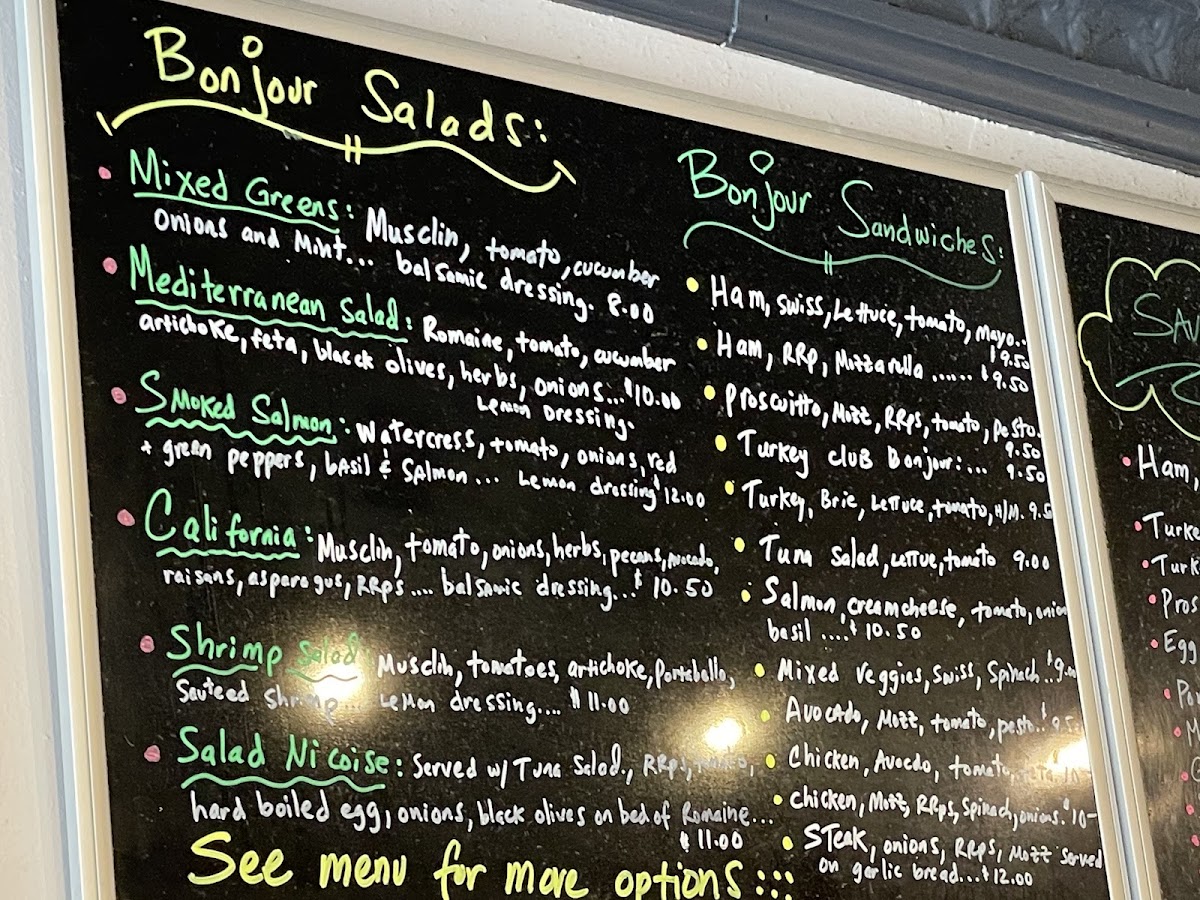 Bonjour Salads:
• Mixed Greens: Musclin, tomato, cucumber
onions and Mint... balsamic dressing. 8.00
• Mediterranean Salad: Romaine, tomato, cucumber
artichoke, feta, blacck olives, herbs, onions...$10.00
Lemon Dressing.
• Smoked Salmon: Watercress, tomato, onions, red
+ green peppers, basil & Salmon... Lemon dressing $12.00
• California: Musclin, tomato, onions, herbs, pecans, Avocado,
raisans, asparagus, RRPs.... balsamic dressing...$10.50
• Shrimp Salad: Musclin, tomatoes, artichoke, Portobello,
Sauteed Shrimp... Lemon dressing.... $11.00
• Salad Nicoise: Served w/ Tuna Salad, RRPs,
hard boiled egg, onions, black olives on bed of Romaine...
$11.00
See menu for more options:::
Bonjour Sandwiches:
• Ham, Swiss, Lettuce, tomato, Mayo..
$9.50
• Ham, RRP, Mozzarella ...... $9.50
• Proscuitto, Mozz, RRPs, tomato, pesto.
9.50
• Turkey cluB Bonjour:... 9.50
• Turkey, Brie, Lettuce, tomato, H/M. 9.5
• Tuna Salad, Lettue, tomato 9.00
• Salmon, creamcheese, tomato, onion
basil ....$10.50
• Mixed Veggies, Swiss, Spinach..$9.00
• Avocado, Mozz, tomato, pesto..$9.5
• Chicken, Avocdo, tomato, 10-
• chicken, Mozz, RRPs, Spinach, onions. $10-
• STeak, onions, RRPs, Mozz served
on garlic bread...$12.00
• Ham,
• Turke
• Turk
• Pros
• Egg